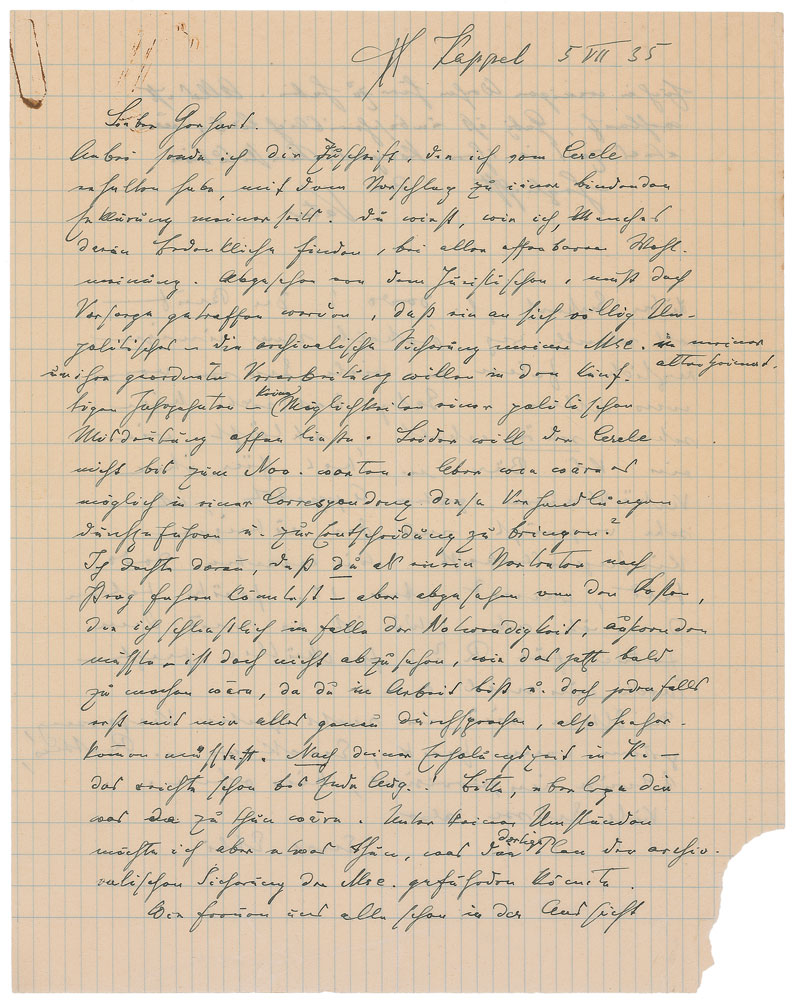 Kappel 5 VII 35
Lieber Gerhart.
Anbei sende ich dir Zuschrift, den ich vom Cercle
erhalten habe, mit dem Vorschlag zu einer bindenden
Erklärung meinerseits. Du wirst, wie ich, Manches
darin bedenklich finden, bei aller offenbaren Wohl-
meinung. Abgesehen von dem Juristischen, muß doch
Vorsorge getroffen werden, daß ein an sich völlig Un-
politisches – die archivalische Sicherung meiner Msc. in meiner
alten Heimat,
um ihrer geordneten Verarbeitung willen in den künf-
tigen Jahrzehnten – keine Möglichkeiten einer politischen
Misdeutung offen ließe. Leider will der Cercle
nicht bis zum Nov. warten. Aber wie wäre es
möglich in einer Correspondenz diese Verhandlungen
durchzuführen u. zur Entscheidung zu bringen?
Ich dachte daran, daß du als mein Vertreter nach
Prag fahren könntest – aber abgesehen von den Kosten,
die ich schließlich im Falle der Notwendigkeit, aufwenden
müßte – ist doch nicht abzusehen, wie das jetzt bald
zu machen wäre, da du in Arbeit bist u. doch jedenfalls
erst mit mir alles genau durchsprechen, also hieher-
kommen müsstest. Nach deiner Erholungszeit in K. –
das reichte schon bis Ende Aug.! Bitte, überlege dir
was da zu thun wäre. Unter keinen Umständen
möchte ich aber etwas thun, was den dortigen Plan der archi-
valischen Sicherung der Msc. gefährden könnte.
Wir freuen uns alle schon in der Aussicht